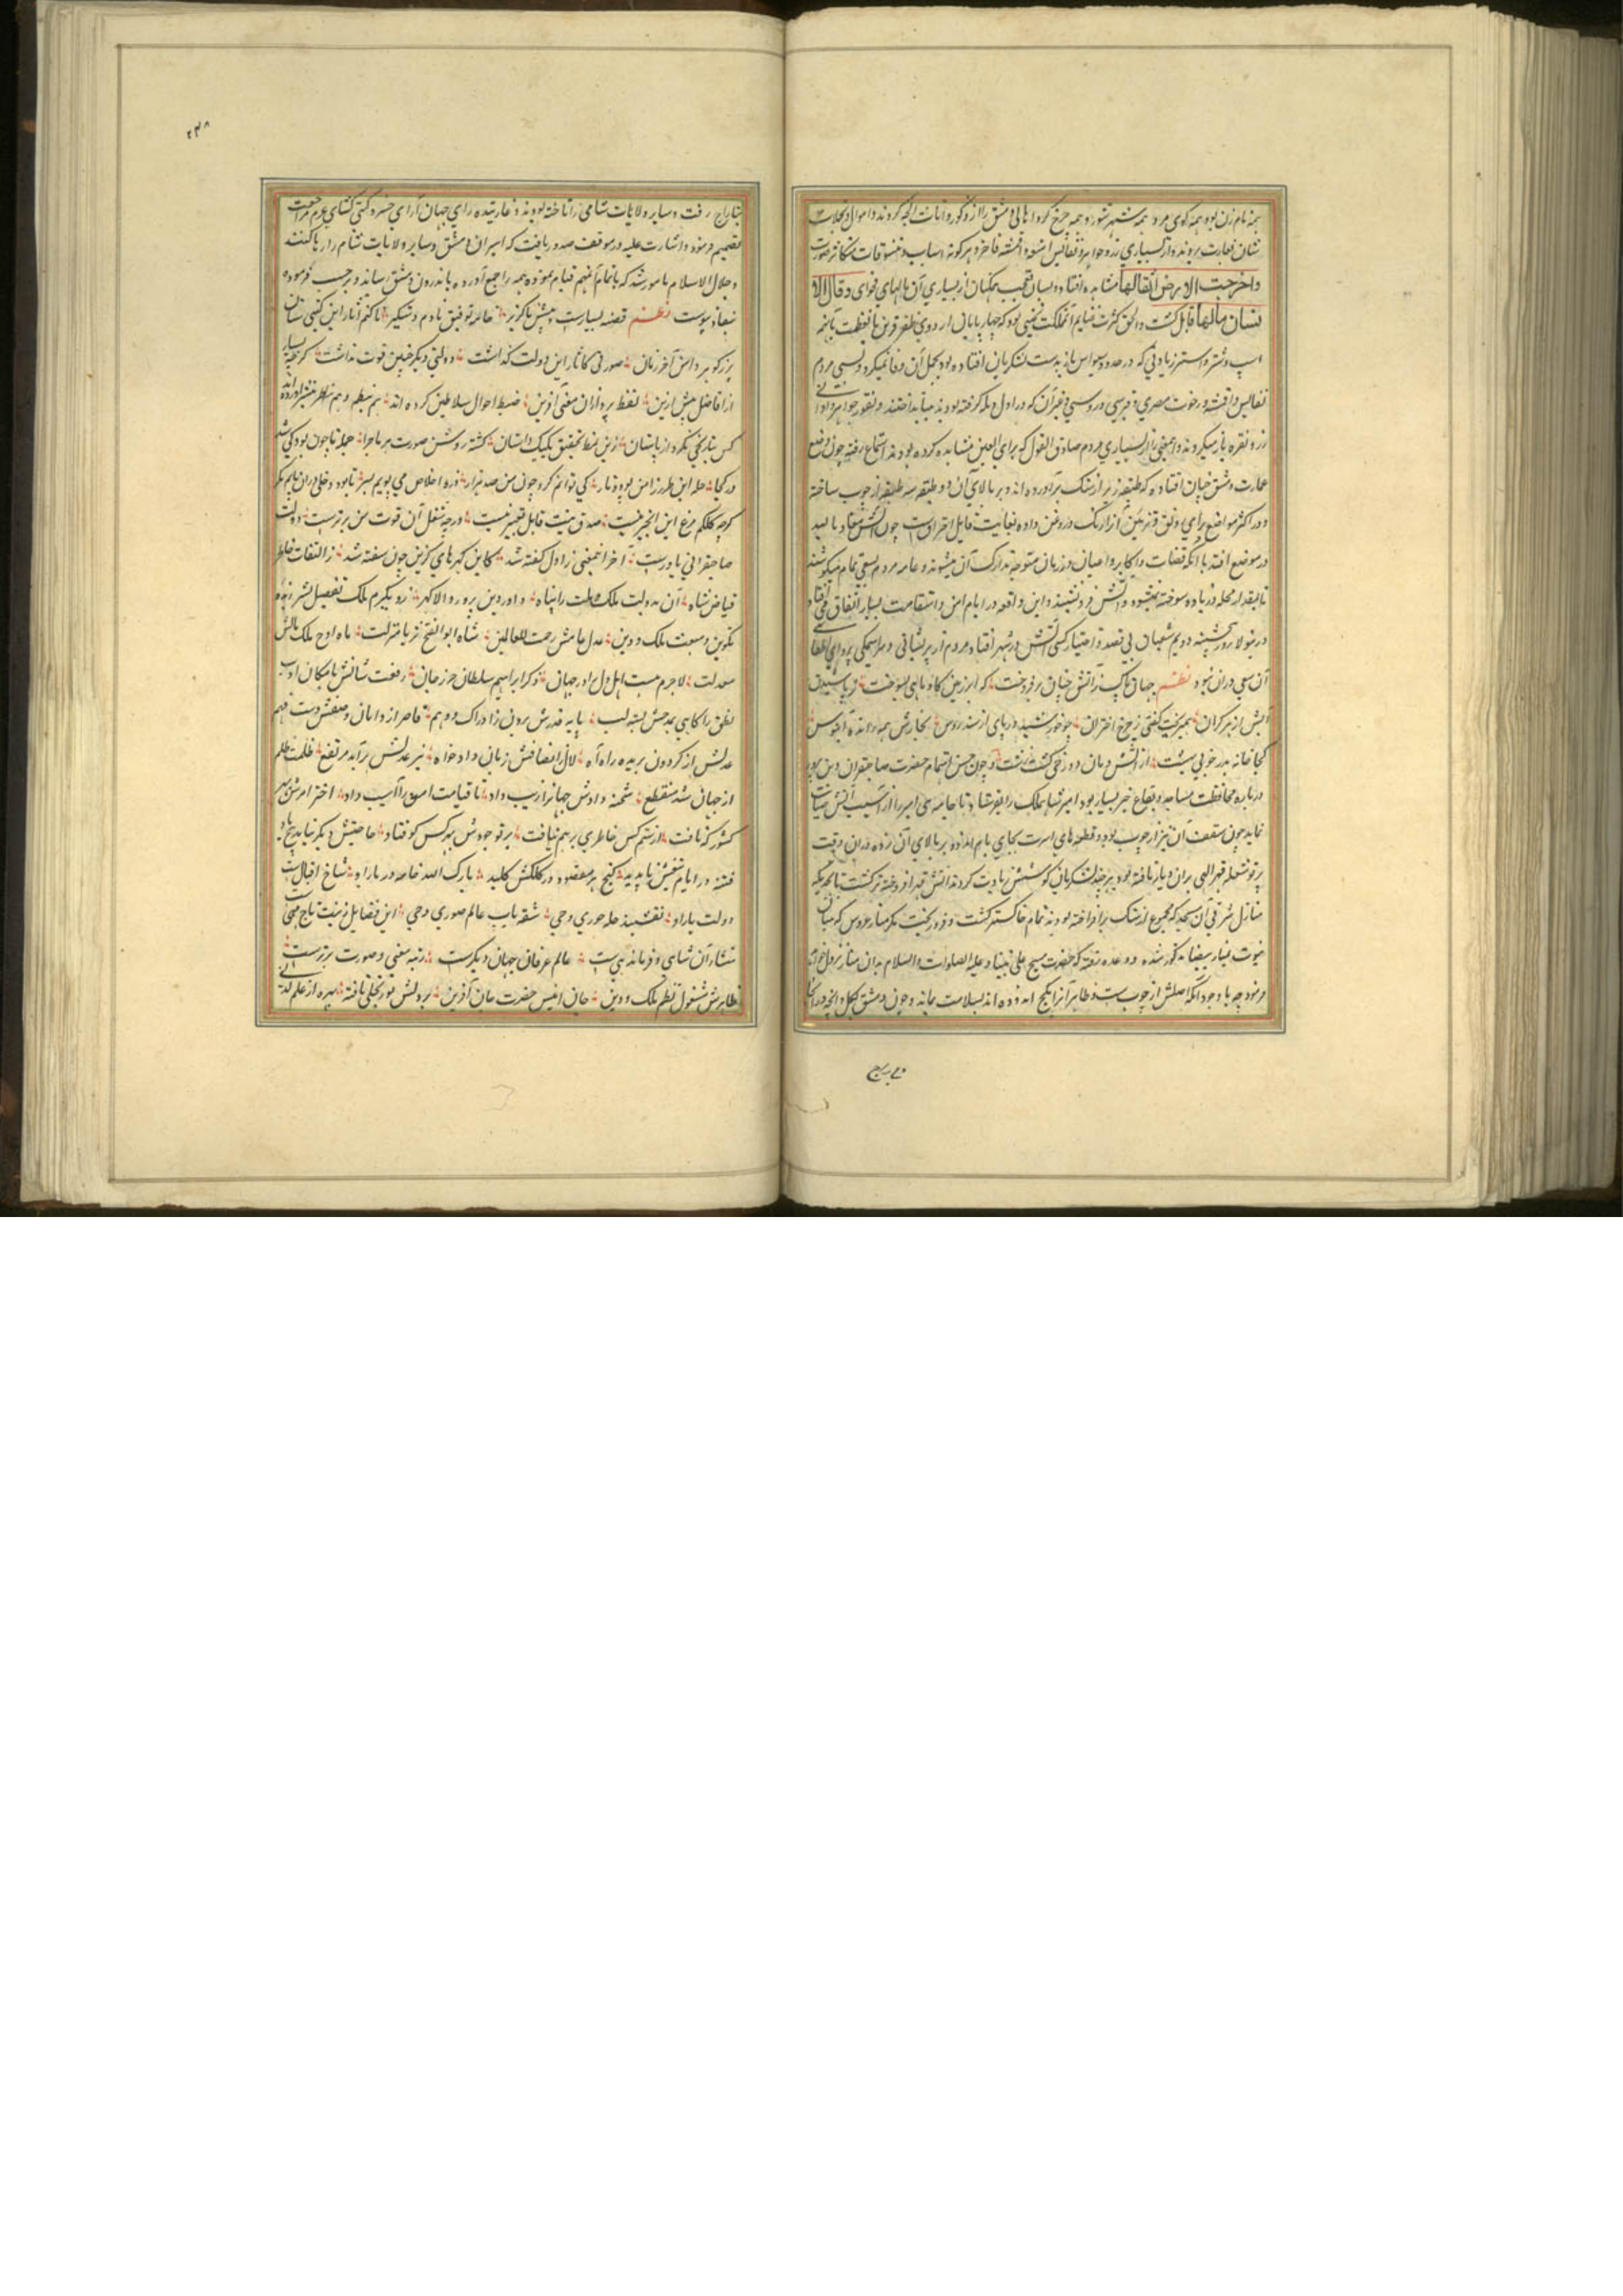 همه نام زن بود همه کوی مرد همه شهر شور و همه چرخ کرد اهالی دمشق را از ذکور و اناث الجه کردند و اموال
نشان بغارت بردند و از بسیاری زر و جواهر و نفایس امتعه و اقمشه فاخر و هر گونه اسباب و تنسوقات متکاثر صورت
واخرجت الارض اثقالها مشاهده افتاد و لسان تعجب همکنان از بسیاری آن مالهای فحوای و قال الا
نسان مالها قایل کشت و الحق کثرت غنایم آن مملکت بحیثی بود که چهارپایان اردوی ظفر قرین با عظمت
اسپ و شتر و استر زیادتی که در حدود سیواس باز بدست لشکریان افتاده بود بحمل آن وفا نمیکرد و بسی مردم
نفایس و اقمشه و رخوت مصری و قبرسی و روسی و غیر آن که در اول بار گرفته بودند می انداختند و نقود و جواهر و اوانی
زر و نقره باز میکردند و این معنی را از بسیاری مردم صادق القول که برای العین مشاهده کرده بودند استماع رفته چون وضع
عمارت دمشق چنان افتاده که طبقه زیر از سنک برآورده اند و بر بالای آن دو طبقه سه طبقه از چوب ساخته
و در اکثر مواضع برای رونق و تزیین آنرا رنک و روغن داده بغایت قابل احتراقست چون آتش
در موضع افتد با آنکه قضات و اکابر و اعیان در زمان متوجه تدارک آن میشوند و عامه مردم بسعی تمام میکوشند
تا مقدار محله و زیاده سوخته نمیشود آتش فرو ننشیند و این واقعه در ایام امن و استقامت بسیار اتفاق می افتاد
درینولا روز پنجشنبه دویم شعبان بی قصد و اختیار کسی آتش در شهر افتاد و مردم از پریشانی و سراسیمکی پروای اطفاء
آن سعی در آن نبود نظم جهان پاک از آتش چنان برفروخت که از زیر زمین کاو ماهی بسوخت
آتش از هر کران همیریخت گفتی ز چرخ اختران چو خورشید دریای از سندروس بخارش همه رانده آبنوس
کجا خانه بد بخوبی بهشت از آتش دمان دوزخی کشت زشت و چون حسن اهتمام حضرت صاحبقران دین پرور
درباره محافظت مساجد و بقاع خیر بسیار بود امیر شاهملک را بفرستاد تا جامع بنی امیه را از آسیب آتش صیانت
نماید چون سقف آن نیز از چوب بود و قطعهای اسرب بجای بام اندود بر بالای آن زده در آن وقت
پرتو شعله قهر الهی بر آن دیار تافته بود هر چند لشکریان کوشش زیادت کردند آتش قهر افروخته تر کشت تا بحدیکه
منازل شرقی آن مسجد که مجموع از سنک برافراخته بودند تمام خاکستر کشت و فرو ریخت مکر مناره عروس که
منوت بمناره بیضا مذکور شده و وعده رفته که حضرت مسیح علی نبینا و علیه الصلوات و السلام بدان مناره نزول خواهد
فرمود چه با وجود آنکه اصلش از چوبست و ظاهر آنرا بکج اندوده اند بسلامت بماند و چون دمشق بکل و آنچه در آنجا
بتاراج رفت و سایر ولایات شامی را تاخته بودند و غارتیده رای جهان آرای خسرو کیتی کشای عزم مراجعت
تصمیم فرمود و اشارت علیه در موقف صدور یافت که اسیران دمشق و سایر ولایات شام را رها کنند
و جلال الاسلام مامور شد که باتمام آن مهم قیام نموده همه را جمع آورده باندرون دمشق رساند و برحسب فرموده
بنفاذ پیوست نظم قصه بسیارست پیش ناکزیر خامه توفیق بادم دستکیر تا کنم آثار این کیتی ستان
بزرگوار در این آخر زمان صورتی کآثار این دولت گذاشت دولتی دیگر چنین قوت نداشت کرچه بسیار
از افاضل پیش ازین لفظ پردازان معنی آفرین ضبط احوال سلاطین کرده اند هم بنظم و هم بنثر آورده اند
کس بتاریخی نکرد از باستان زین نمط تحقیق یک یک داستان کشته روشن صورت هر ماجرا جمله تا چون بود کی شد
در کجا جمله این طرز از من بود و یار کی توانم کرد چون من صد هزار ذره اخلاص می پویم بسر
کرچه کلکم مرغ این انجیر نیست صدق نیت قابل تغییر نیست درچه شغل آن قوت من برترست دولت
صاحبقرانی یاورست آخر این معنی ز اول گفته شد کاین کهرهای گزین چون سفته شد ز التفات خاطر
فیاض شاه آن بدولت ملک و ملت را پناه داور دین پرور والا کهر
تکوین و سبعت ملک و دین عدل عامش رحمت للعالمین شاه ابوالفتح ثریا منزلت ماه اوج ملک مالش
معدلت لاجرم هست اهل دل را در جهان ذکر ابراهیم سلطان حرز جان رفعت شانش با مکان ادب
نطق را کاهی بمدحش بسته لب پایه قدرش برون ز ادراک و وهم قاصر از دامان وصفش دست فهم
عدلش از کردون بریده راه آه لال انصافش زبان دادخواه نیر عدلش برآمد مرتفع ظلمت ظلم
از جهان شد منقطع شحنه دادش جهانرا زیب داد تا قیامت امن را آسیب داد اختر امرش بهر
کشور که تافت از ستم کس خاطری برهم نیافت پرتو جودش بهر کس کوفتاد حاجتش دیگر نیاید هیچ یاد
فتنه در ایام تیغش ناپدید گنج هر مقصود و در کلکش کلید بارک الله خامه دربار او شاخ اقبالست
دولت بار او نقشبند حله حوری وحی شقه باب عالم صوری وحی این فضایل زینت تاج
منشاء آن شاهی و فرماندهیست عالم عرفان جهان دیگرست رتبه معنی و صورت برترست
ظاهرش مشغول نظم ملک و دین جان انیس حضرت جان آفرین بر دلش نور تجلی تافته بهره از علم لدنی
بتاراج
۲۳۸